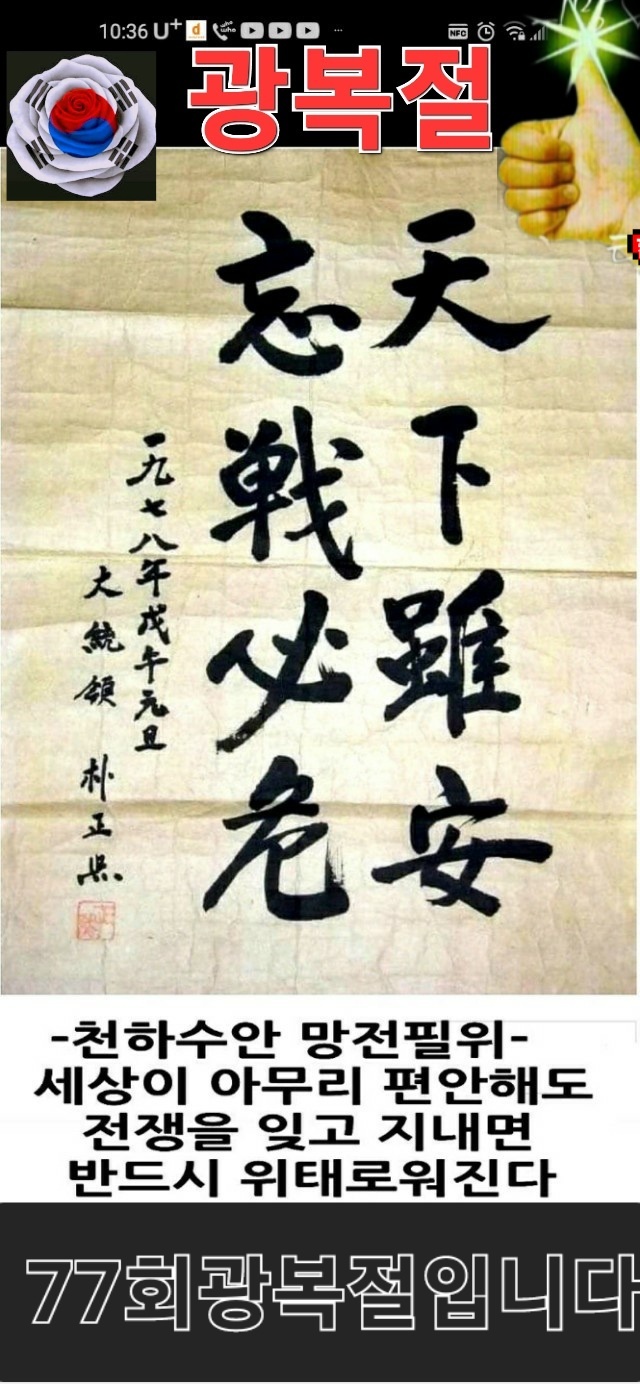 10:36 U+
광복절
天下雖安
忘戦必危
一九七八年戊午元旦
大統領 朴正熙
-천하수안 망전필위-
세상이 아무리 편안해도
전쟁을 잊고 지내면
반드시 위태로워진다
77회광복절입니다